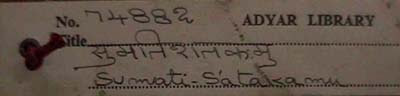 No. 74882 ADYAR LIBRARY
Title
सुमतिशतकमु
Sumati-Satakamu